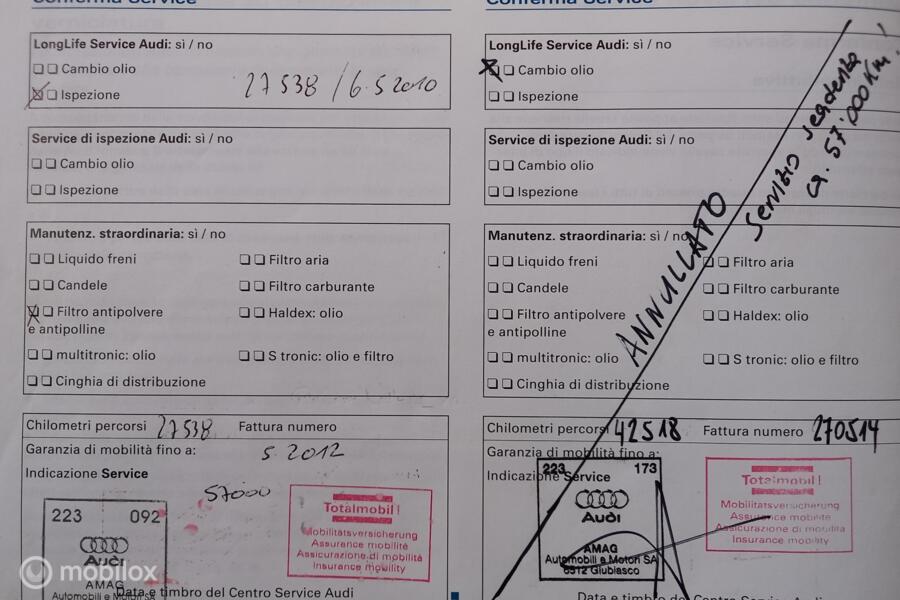 Conferma Service
LongLife Service Audi: sì / no
Cambio olio
Ispezione
27538 / 6.5 2010
Service di ispezione Audi: sì / no
Cambio olio
Ispezione
Manutenz. straordinaria: sì / no
Liquido freni
Filtro aria
Candele
Filtro carburante
Filtro antipolvere
e antipolline
Haldex: olio
multitronic: olio
S tronic: olio e filtro
Cinghia di distribuzione
Chilometri percorsi 27538 Fattura numero
Garanzia di mobilità fino a: 5. 2012
Indicazione Service
57000
223 092
Audi
AMAG
Automobili e Motori SA
Totalmobil!
Mobilitätsversicherung
Assurance mobilité
Assicurazione di mobilità
Insurance mobility
Data e timbro del Centro Service Audi
Conferma Service
LongLife Service Audi: sì / no
Cambio olio
Ispezione
Service di ispezione Audi: sì / no
Cambio olio
Ispezione
Manutenz. straordinaria: sì / no
Liquido freni
Filtro aria
Candele
Filtro carburante
Filtro antipolvere
e antipolline
Haldex: olio
multitronic: olio
S tronic: olio e filtro
Cinghia di distribuzione
ANNULLATO
Servizio scadenza
ca. 57'000 Km!
Chilometri percorsi 42518 Fattura numero 270514
Garanzia di mobilità fino a:
Indicazione Service
223 173
Audi
AMAG
Automobili e Motori SA
6512 Giubiasco
Totalmobil!
Mobilitätsversicherung
Assurance mobilité
Assicurazione di mobilità
Insurance mobility
Data e timbro del Centro Service Audi
mobilox